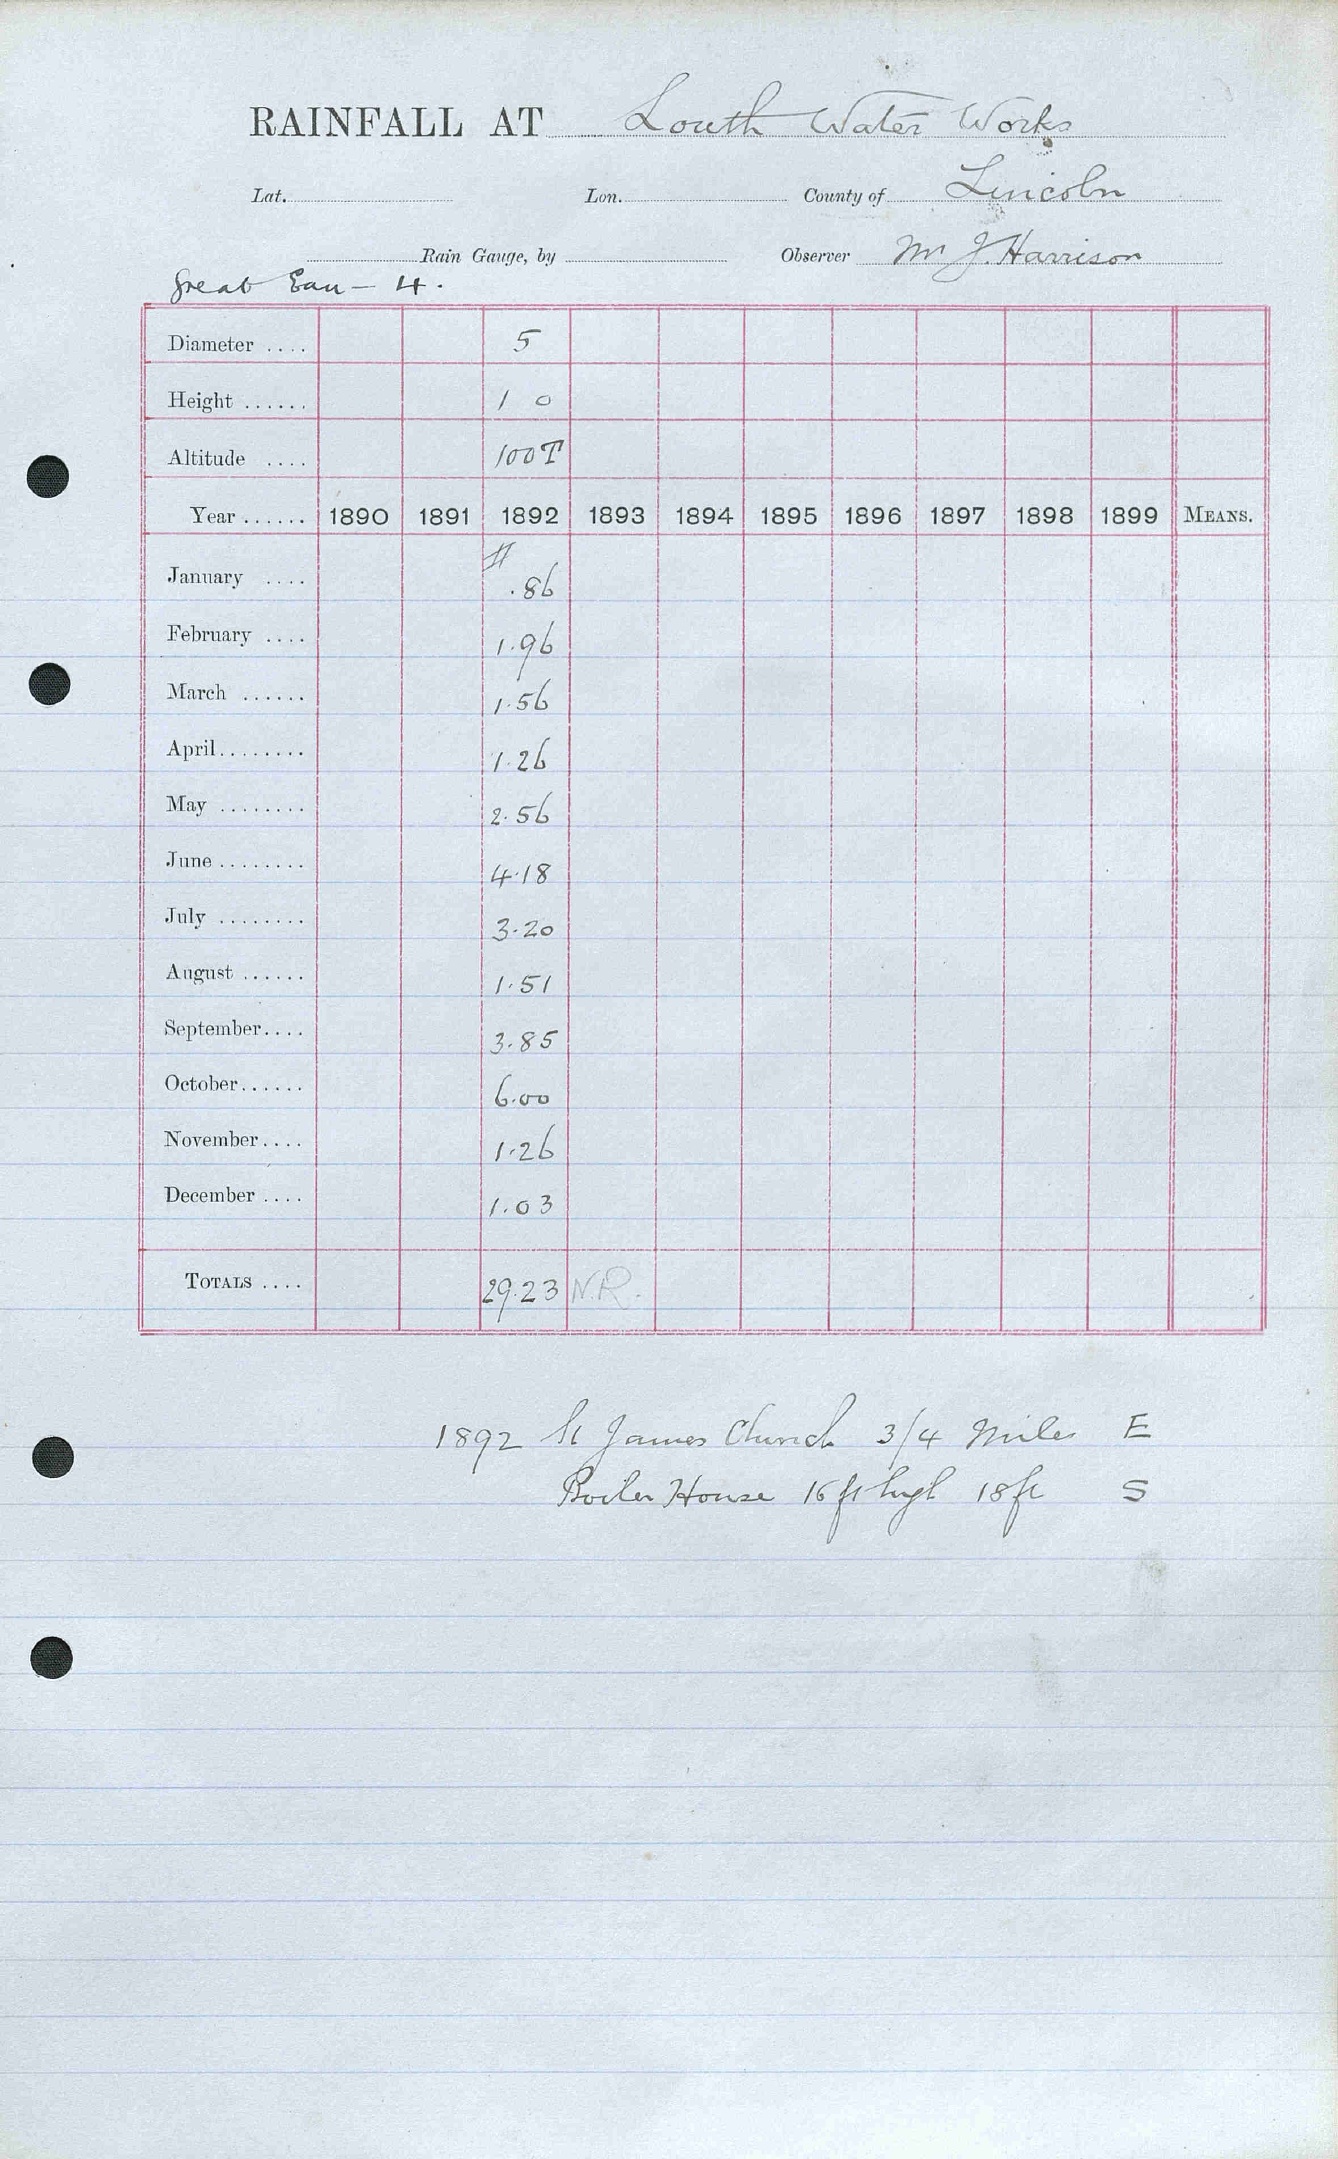 RAINFALL AT Louth Water Works
Lat. Lon. County of Lincoln
Rain Gauge, by Observer Mr J. Harrison
Great Eau — 4.
Diameter .... 5
Height ...... 1 0
Altitude .... 100T
Year ...... 1890 1891 1892 1893 1894 1895 1896 1897 1898 1899 MEANS.
January .... .86
February .... 1.96
March ...... 1.56
April........ 1.26
May ........ 2.56
June ........ 4.18
July ........ 3.20
August ...... 1.51
September.... 3.85
October...... 6.00
November.... 1.26
December .... 1.03
TOTALS .... 29.23 N.R.
1892 St James Church 3/4 Miles E
Boiler House 16 ft high 18 ft S